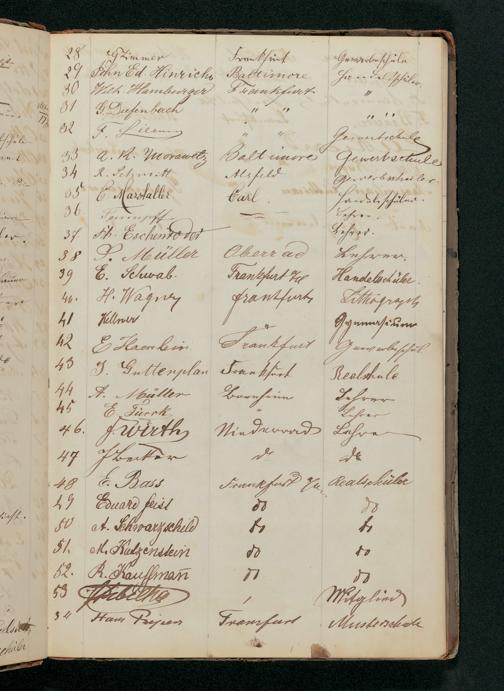 28 G Zimmer Frankfurt Gewerbeschule
29 John Ed. Hinrichs Baltimore
30 Hamburger Frankfurt "
31 G Diefenbach " " " "
32 F. " " Gewerbschule
33 A. R. Morawetz Baltimore Gewerbschule
34 R. Alsfeld
35 C. Marstaller Carl.
36 Lehrer
37 H. Lehrer
38 P. Müller Oberrad Lehrer.
39 E. Schwab. Frankfurt Handelschüler.
40. H. Wagner Frankfurt Lithograph
41 Kellner Gymnasium
42 E Frankfurt Gewerbeschül
43 J. Guttenplan Frankfurt Realschule
44 A. Müller Bornheim Lehrer
45 E. Türck " Lehrer
46. J. Wirth Niederrad Lehrer
47 J Becker do do
48 E. Bass Frankfurt Realschüler
49 Eduard Geist do do
50 A. Schwarzscheld do do
51. M. Katzenstein do do
52. R. Kauffmann do do
53 Mitglied
54 Hans Frankfurt Musterschule